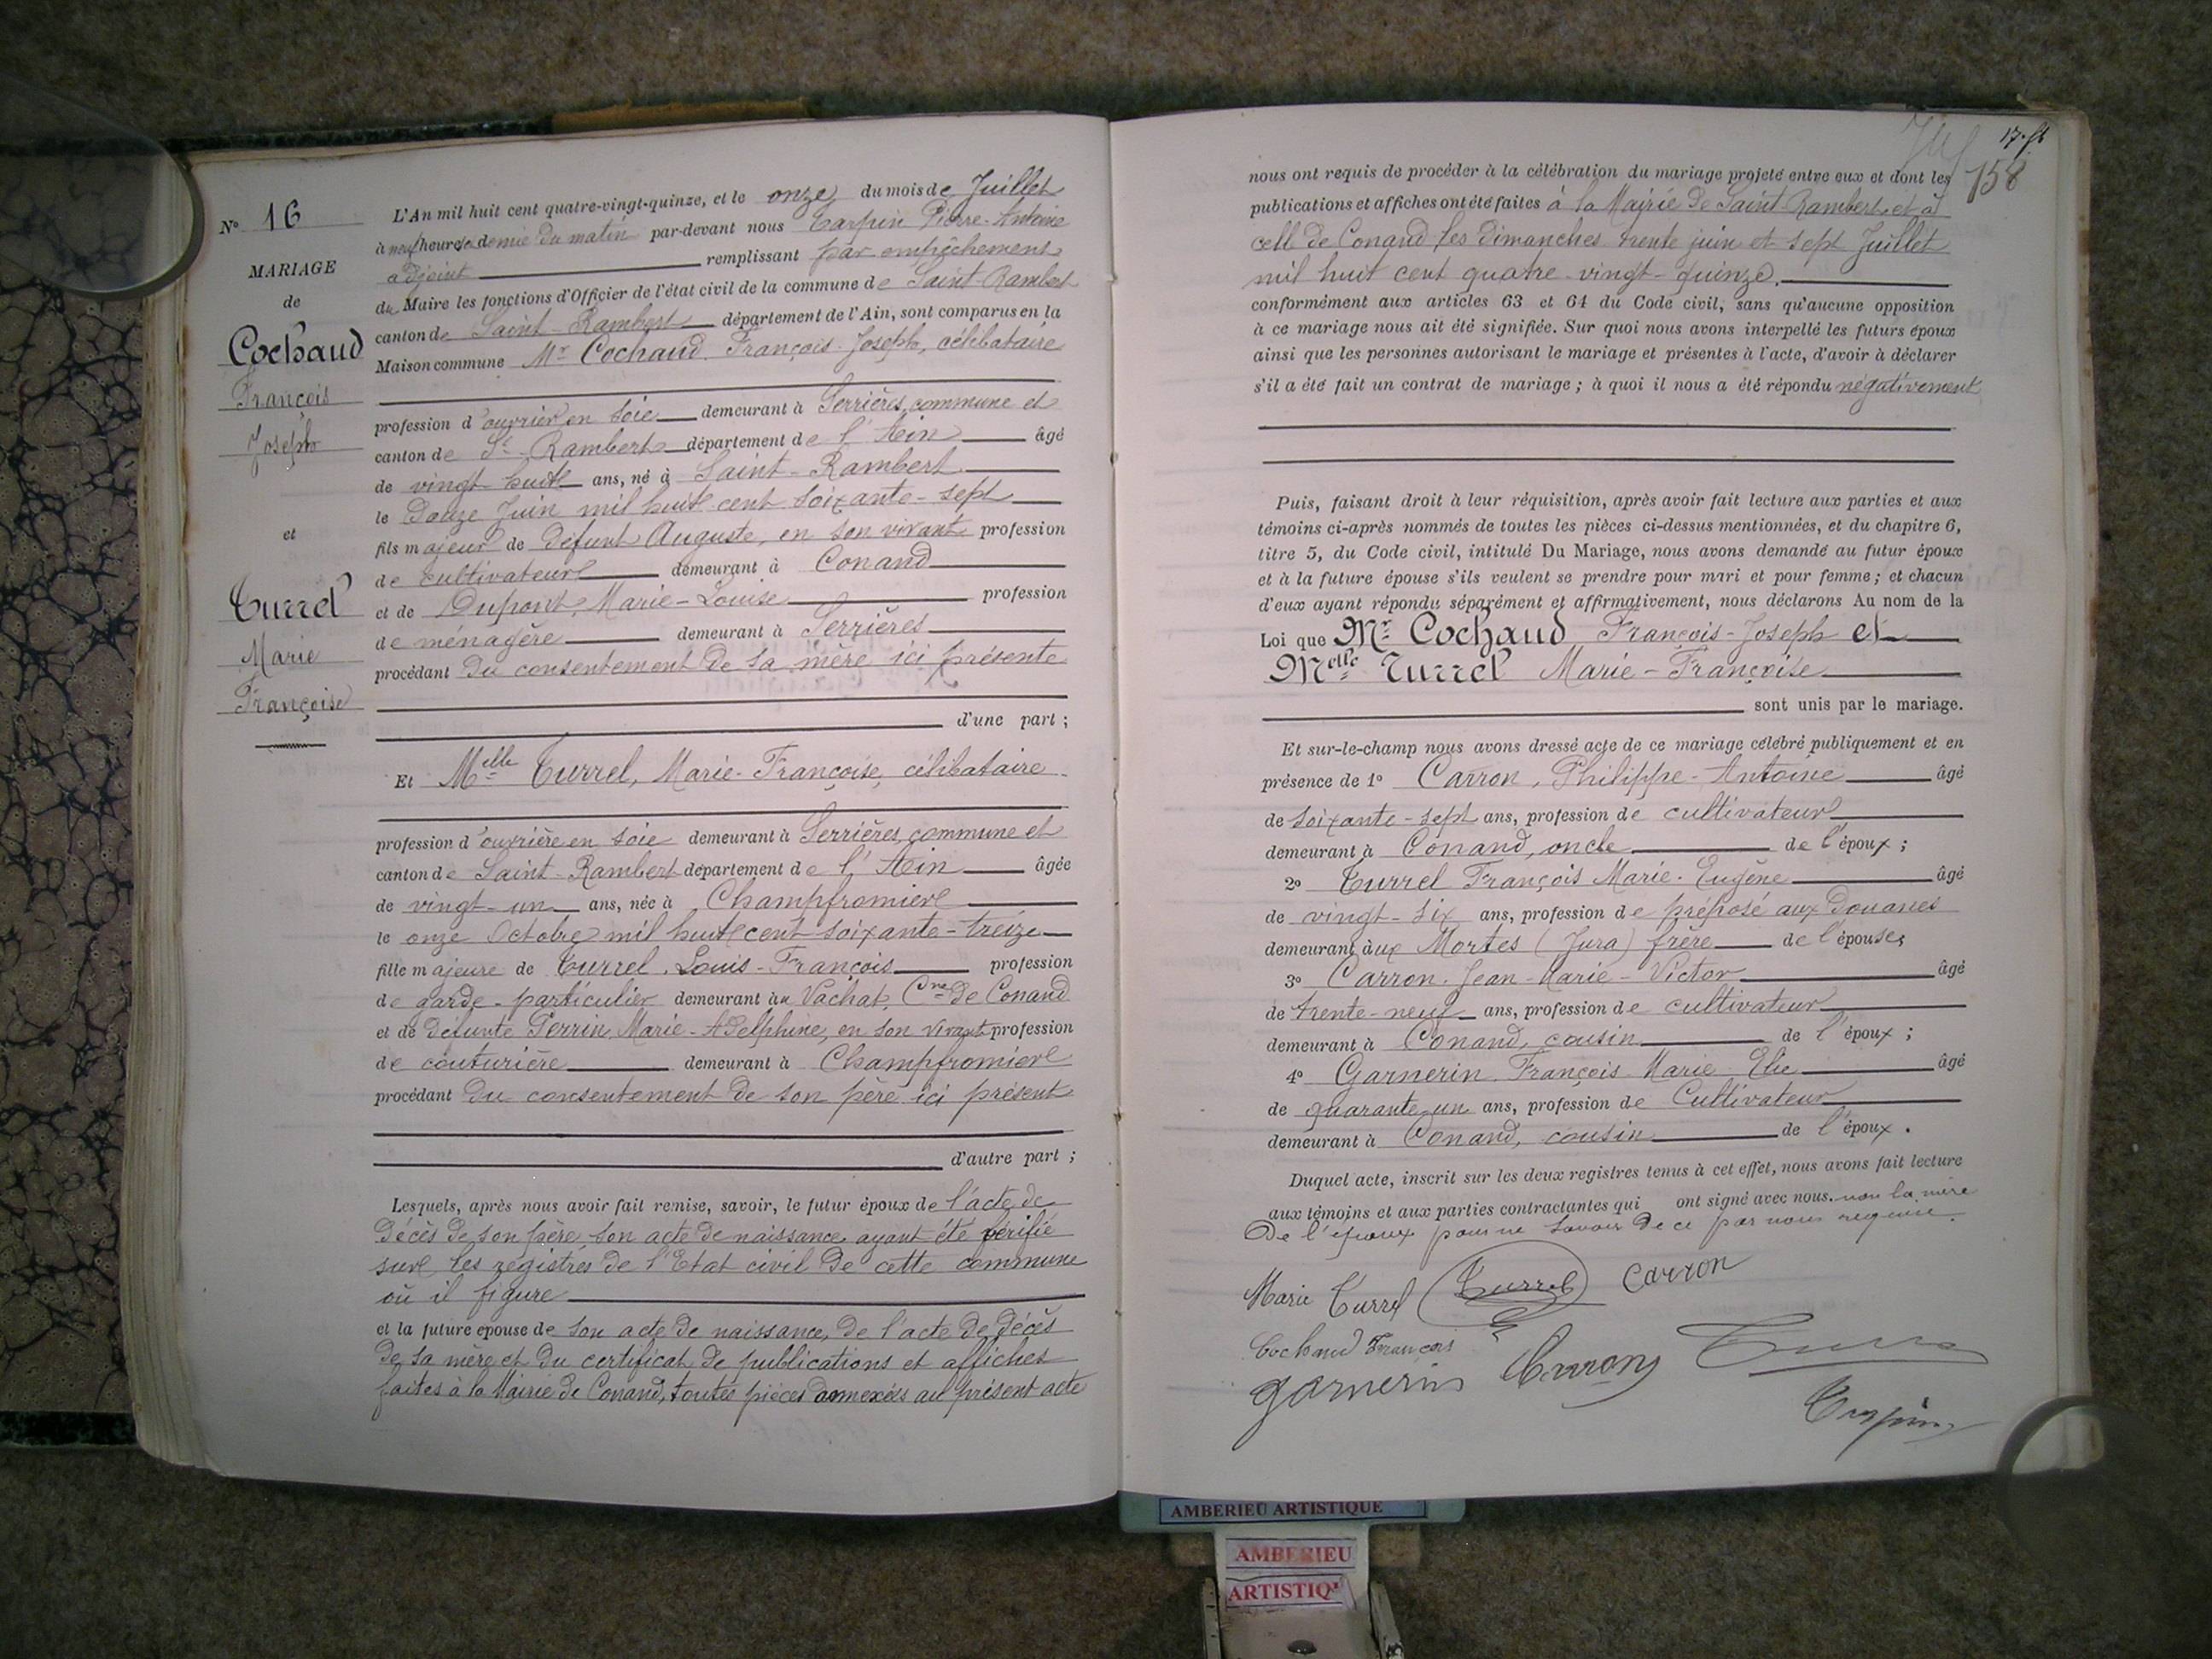 No 16
MARIAGE
de
Cochaud
François
Joseph
et
Turrel
Marie
Françoise
L'An mil huit cent quatre-vingt-quinze, et le onze du mois de Juillet
à neuf heures et demie du matin par-devant nous Tarpin Pierre-Antoine
adjoint remplissant par empêchement
du Maire les fonctions d'Officier de l'état civil de la commune de Saint-Rambert
canton de Saint-Rambert département de l'Ain, sont comparus en la
Maison commune Mr Cochaud François-Joseph, célibataire
profession d'ouvrier en soie demeurant à Serrières, commune et
canton de St Rambert département de l'Ain âgé
de vingt-huit ans, né à Saint-Rambert
le Douze Juin mil huit cent soixante-sept
fils majeur de défunt Auguste, en son vivant profession
de cultivateur demeurant à Conand
et de Dupont, Marie-Louise profession
de ménagère demeurant à Serrières
procédant du consentement de sa mère ici présente
d'une part ;
Et Melle Turrel, Marie-Françoise, célibataire
profession d'ouvrière en soie demeurant à Serrières, commune et
canton de Saint-Rambert département de l'Ain âgée
de vingt-un ans, née à Champfromier
le onze Octobre mil huit cent soixante-treize
fille majeure de Turrel, Louis-François profession
de garde-particulier demeurant au Vachat, Cne de Conand
et de défunte Perrin, Marie-Adelphine, en son vivant profession
de couturière demeurant à Champfromier
procédant du consentement de son père ici présent
d'autre part ;
Lesquels, après nous avoir fait remise, savoir, le futur époux de l'acte de
décès de son père, son acte de naissance ayant été vérifié
sur les registres de l'Etat civil de cette commune
où il figure
et la future épouse de son acte de naissance, de l'acte de décès
de sa mère et du certificat de publications et affiches
faites à la Mairie de Conand, toutes pièces annexées au présent acte
158
nous ont requis de procéder à la célébration du mariage projeté entre eux et dont les
publications et affiches ont été faites à la Mairie de Saint Rambert et à
celle de Conand les dimanches trente juin et sept Juillet
mil huit cent quatre-vingt-quinze.
conformément aux articles 63 et 64 du Code civil, sans qu'aucune opposition
à ce mariage nous ait été signifiée. Sur quoi nous avons interpellé les futurs époux
ainsi que les personnes autorisant le mariage et présentes à l'acte, d'avoir à déclarer
s'il a été fait un contrat de mariage ; à quoi il nous a été répondu négativement
Puis, faisant droit à leur réquisition, après avoir fait lecture aux parties et aux
témoins ci-après nommés de toutes les pièces ci-dessus mentionnées, et du chapitre 6,
titre 5, du Code civil, intitulé Du Mariage, nous avons demandé au futur époux
et à la future épouse s'ils veulent se prendre pour mari et pour femme ; et chacun
d'eux ayant répondu séparément et affirmativement, nous déclarons Au nom de la
Loi que Mr Cochaud François-Joseph et
Melle Turrel Marie-Françoise
sont unis par le mariage.
Et sur-le-champ nous avons dressé acte de ce mariage célébré publiquement et en
présence de 1o Carron, Philippe-Antoine âgé
de soixante-sept ans, profession de cultivateur
demeurant à Conand, oncle de l'époux ;
2o Turrel François Marie-Eugène âgé
de vingt-six ans, profession de préposé aux Douanes
demeurant aux Mortes (Jura) frère de l'épouse ;
3o Carron Jean-Marie-Victor âgé
de trente-neuf ans, profession de cultivateur
demeurant à Conand, cousin de l'époux ;
4o Garnerin François Marie Elie âgé
de quarante-un ans, profession de Cultivateur
demeurant à Conand, cousin de l'époux.
Duquel acte, inscrit sur les deux registres tenus à cet effet, nous avons fait lecture
aux témoins et aux parties contractantes qui ont signé avec nous. non la mère
De l'époux pour ne savoir de ce par nous requise.
Marie Turrel Turrel Carron
Cochaud François
Garnerin Carron
Tarpin
AMBERIEU ARTISTIQUE
AMBERIEU
ARTISTIQ